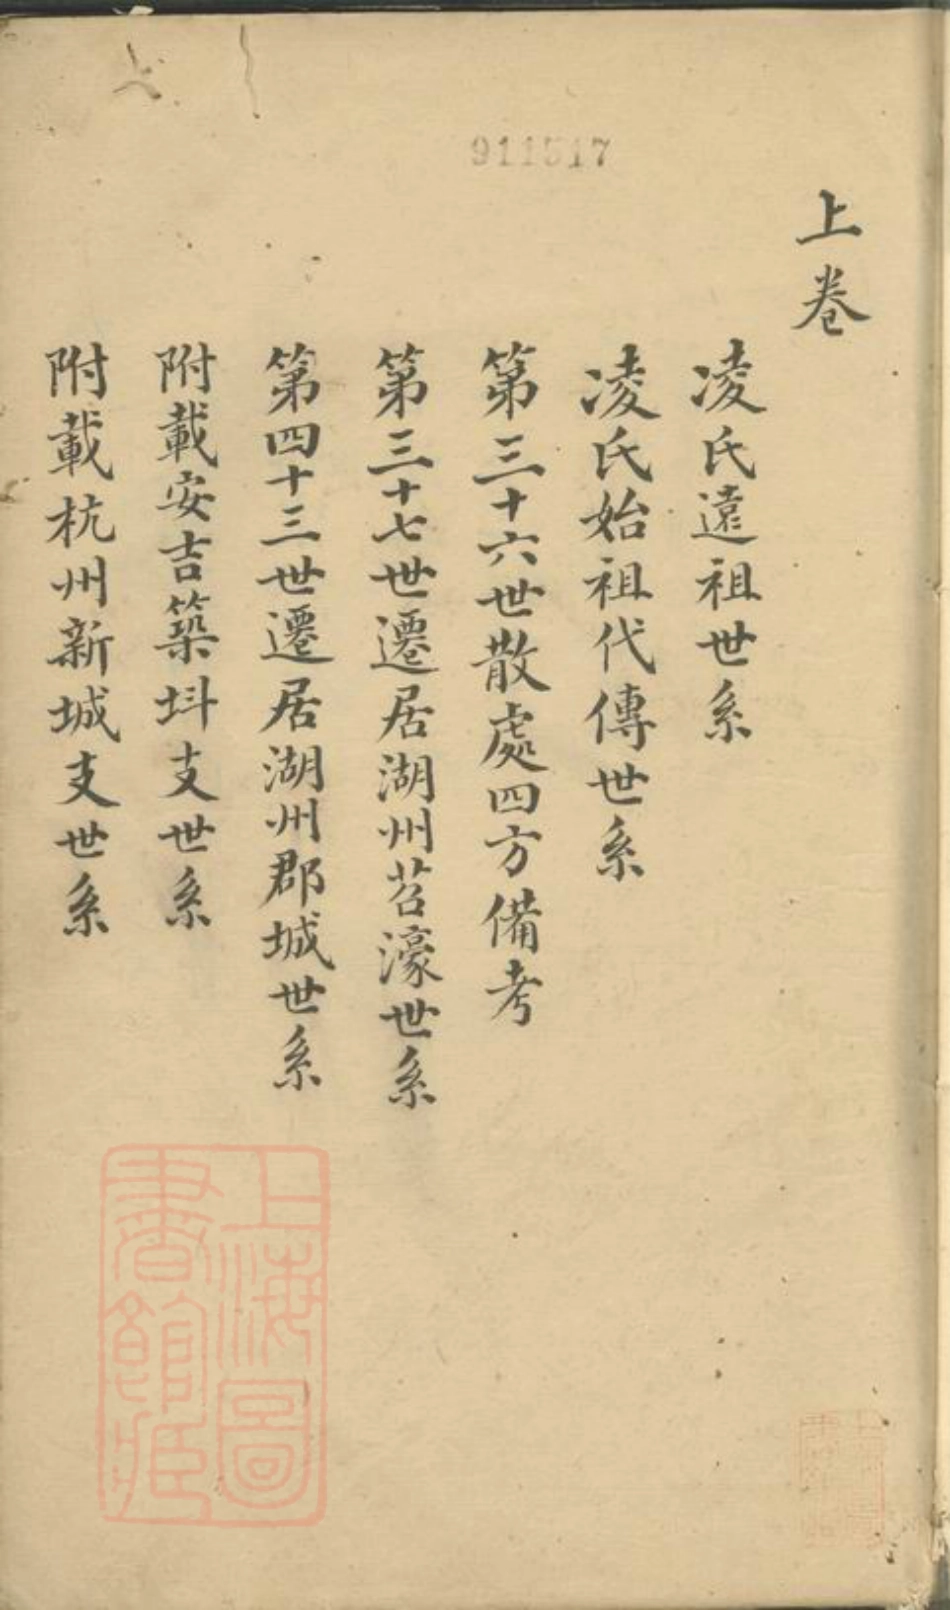 911517
上卷
凌氏遠祖世系
凌氏始祖代傳世系
第三十六世散處四方備考
第三十七世遷居湖州苕濠世系
第四十三世遷居湖州郡城世系
附載安吉築㘰支世系
附載杭州新城支世系
上海圖
書館藏